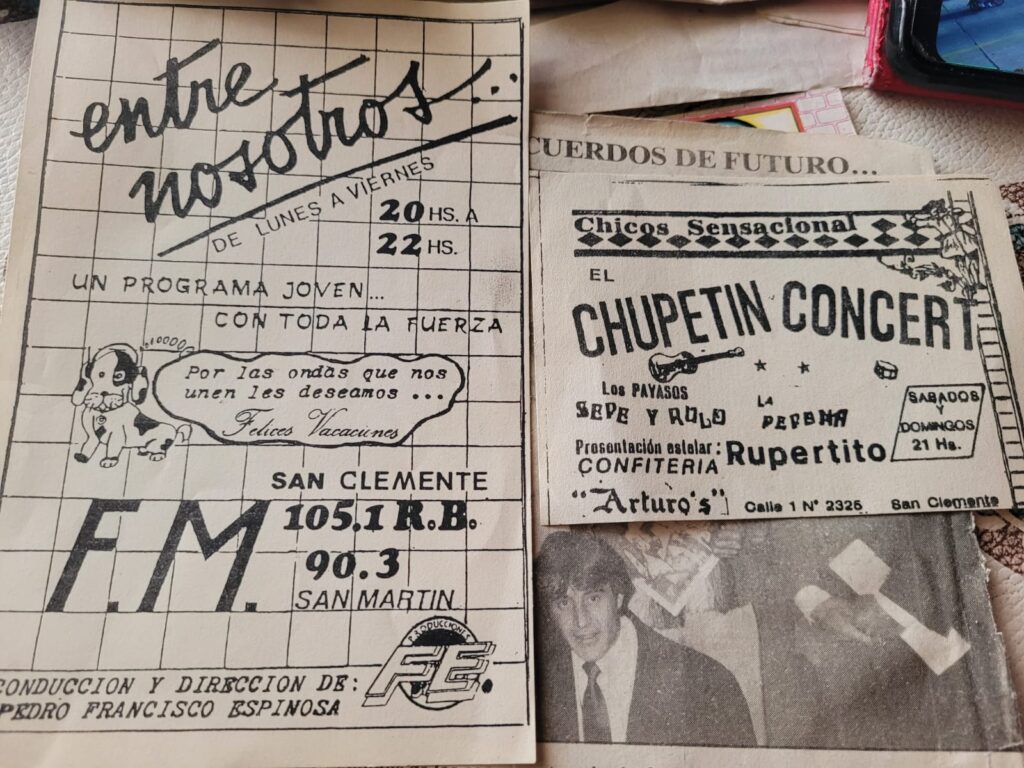 entre
nosotros...
DE LUNES A VIERNES
20 HS. A
22 HS.
UN PROGRAMA JOVEN...
CON TODA LA FUERZA
Por las ondas que nos
unen les deseamos ...
Felices Vacaciones
SAN CLEMENTE
F.M. 105.1 R.B.
90.3
SAN MARTIN
PRODUCCIONES
FE.
CONDUCCION Y DIRECCION DE:
PEDRO FRANCISCO ESPINOSA
CUERDOS DE FUTURO...
Chicos Sensacional
EL
CHUPETIN CONCERT
Los PAYASOS
SEPE Y ROLO
LA
PEPONA
SABADOS
Y
DOMINGOS
21 Hs.
Presentación estelar: Rupertito
CONFITERIA
"Arturo's" Calle 1 Nº 2325 San Clemente